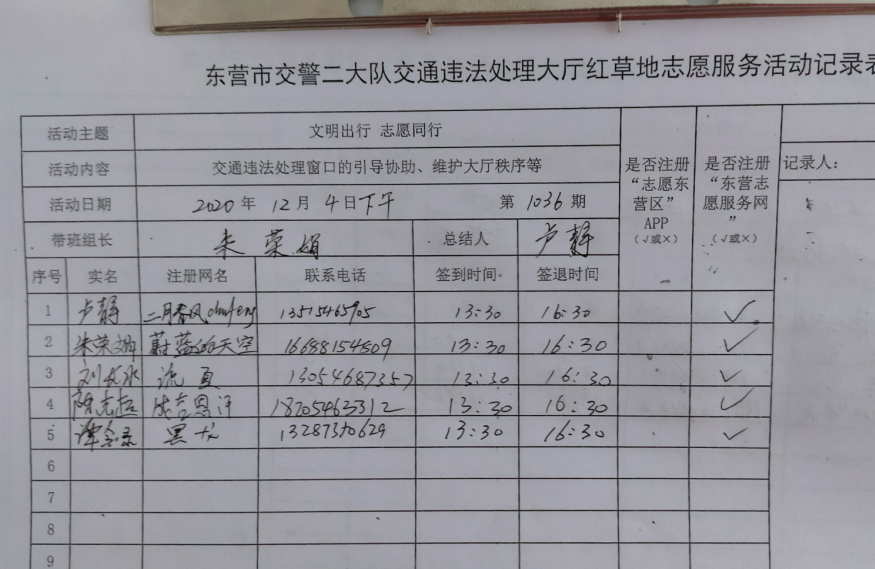 东营市交警二大队交通违法处理大厅红草地志愿服务活动记录表
活动主题 文明出行 志愿同行
活动内容 交通违法处理窗口的引导协助、维护大厅秩序等
活动日期 2020 年 12 月 4 日下午 第 1036 期
是否注册“志愿东营区”APP（√或×）
是否注册“东营志愿服务网”（√或×）
记录人：
带班组长 朱荣娟 总结人 卢静
序号 实名 注册网名 联系电话 签到时间 签退时间
1 卢静 二月春风 13515465905 13:30 16:30 √
2 朱荣娟 蔚蓝的天空 16688154809 13:30 16:30 √
3 13054687357 13:30 16:30 √
4 18705463312 13:30 16:30 √
5 13287370629 13:30 16:30 √
6
7
8
9